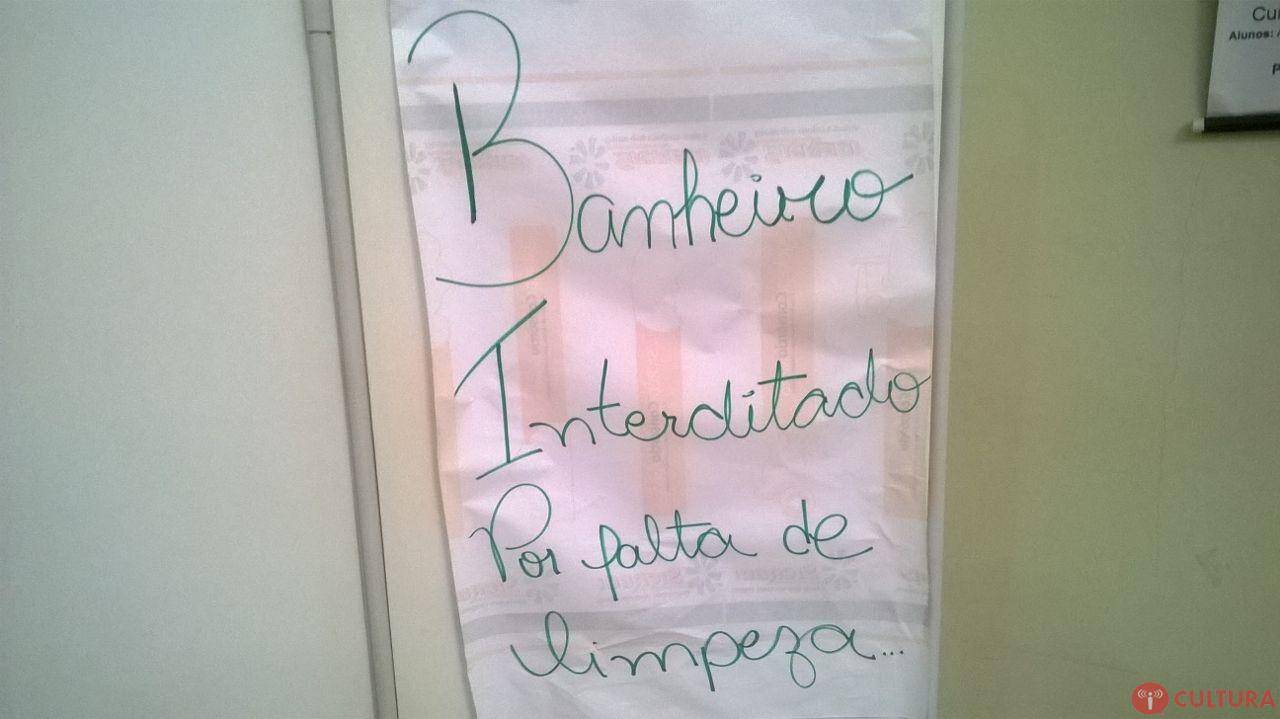 Banheiro
Interditado
Por falta de
limpeza...
Alunos:
CULTURA